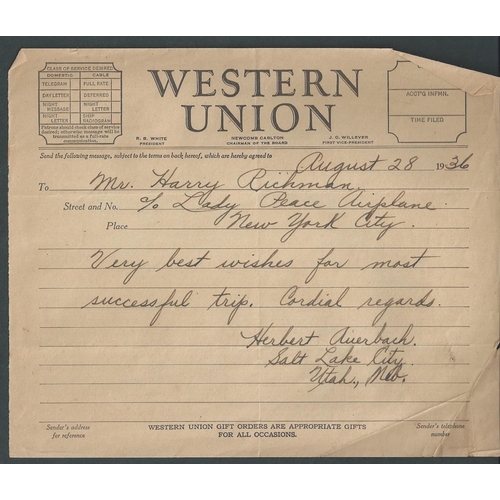 CLASS OF SERVICE DESIRED
DOMESTIC CABLE
TELEGRAM FULL RATE
DAY LETTER DEFERRED
NIGHT MESSAGE NIGHT LETTER
NIGHT LETTER SHIP RADIOGRAM
Patrons should check class of service
desired; otherwise message will be
transmitted as a full-rate
communication.
WESTERN
UNION
R. B. WHITE
PRESIDENT
NEWCOMB CARLTON
CHAIRMAN OF THE BOARD
J. C. WILLEVER
FIRST VICE-PRESIDENT
ACCT'G INFMN.
TIME FILED
Send the following message, subject to the terms on back hereof, which are hereby agreed to
August 28 1936
To Mr. Harry Richman
Street and No. c/o Lady Peace Airplane
Place New York City.
Very best wishes for most
successful trip. Cordial regards.
Herbert Auerbach.
Salt Lake City
Utah,
Sender's address
for reference
WESTERN UNION GIFT ORDERS ARE APPROPRIATE GIFTS
FOR ALL OCCASIONS.
Sender's telephone
number